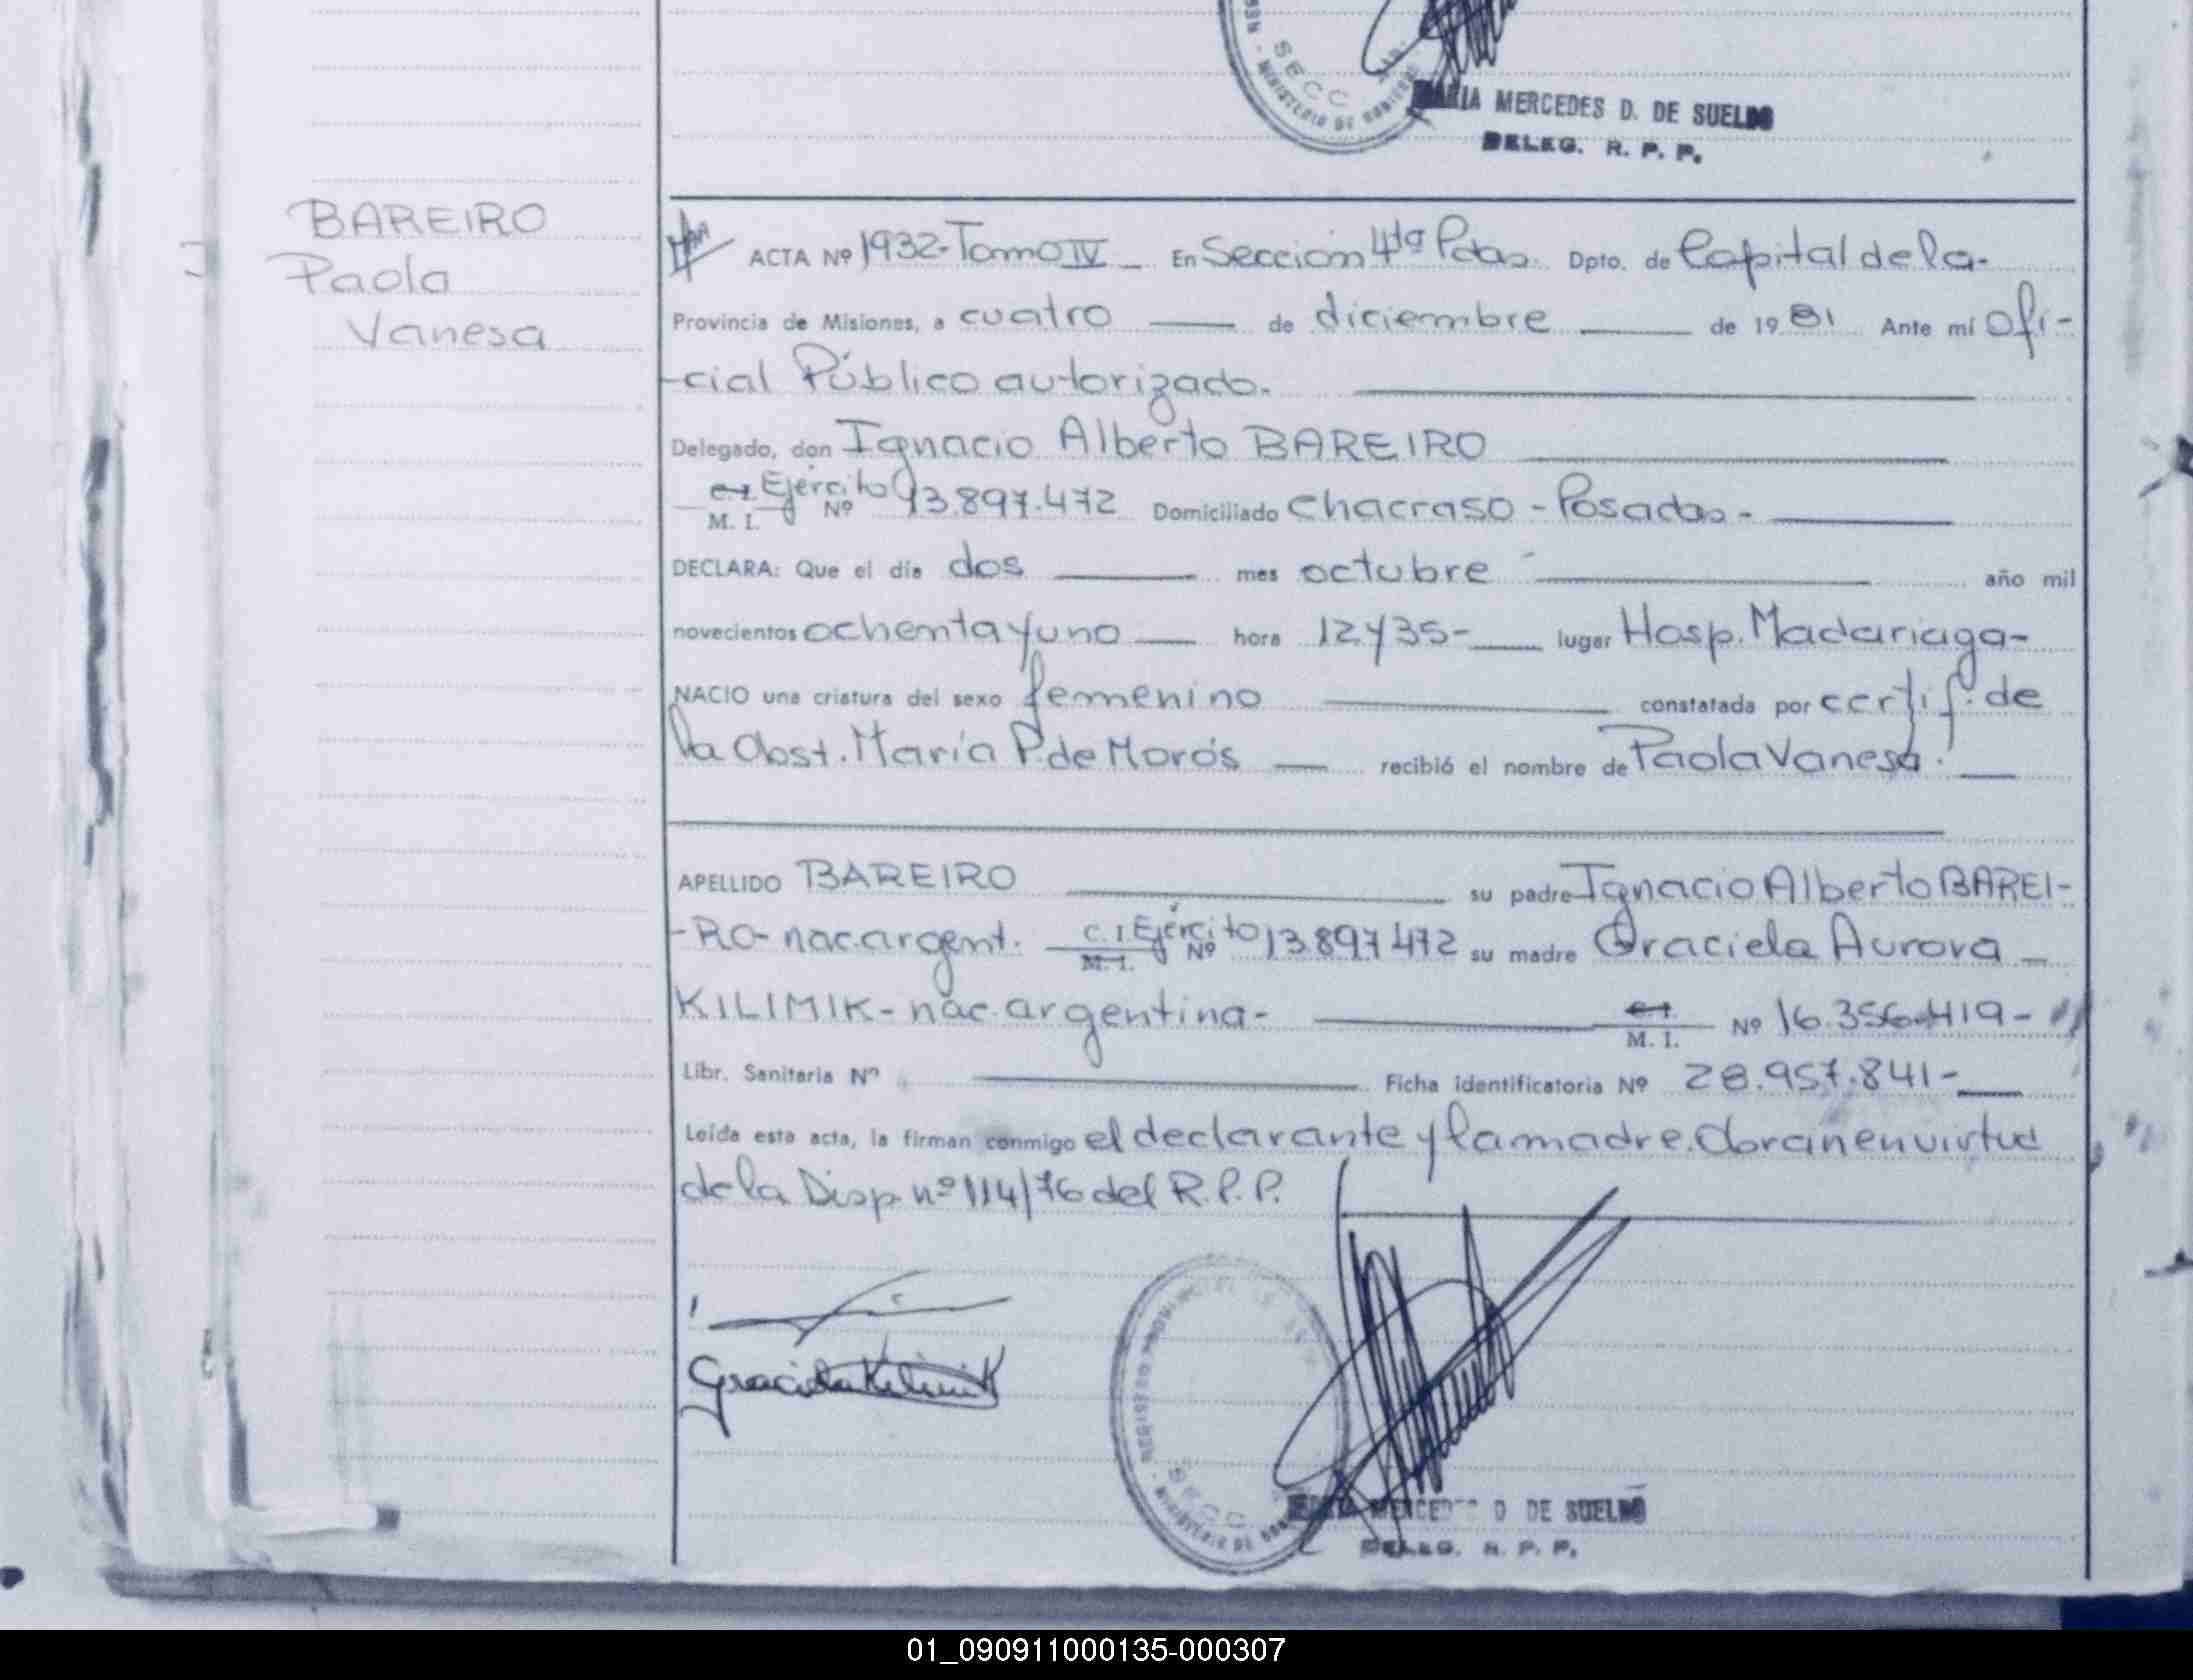 SECC
MINISTERIO DE GOBIERNO
MARIA MERCEDES D. DE SUELDO
DELEG. R. P. P.
BAREIRO
Paola
Vanesa
ACTA Nº 1932-Tomo IV - En Sección 4ta Pdas. Dpto. de Capital de la-
Provincia de Misiones, a cuatro de diciembre de 1981 Ante mí ofi-
-cial Público autorizado.
Delegado, don Ignacio Alberto BAREIRO
C.I. Ejército
M. I. Nº 13.897.472 Domiciliado Chacra 50 - Posadas -
DECLARA: Que el día dos mes octubre año mil
novecientos ochenta y uno hora 12 y 35 - lugar Hosp. Madariaga-
NACIO una criatura del sexo femenino constatada por certif. de
la Obst. María P. de Morós recibió el nombre de Paola Vanesa.
APELLIDO BAREIRO su padre Ignacio Alberto BAREI-
-RO- nac. argent. C.I. Ejército M. I. Nº 13.897.472 su madre Graciela Aurora -
KILIMIK - nac. argentina- C.I. M. I. Nº 16.356.419-
Libr. Sanitaria Nº Ficha identificatoria Nº 28.957.841-
Leída esta acta, la firman conmigo el declarante y la madre. Obran en virtud
de la Disp. nº 114/76 del R.P.P.
Graciela Kilimik
REGISTRO PROVINCIAL DE LAS
SECC
MINISTERIO DE
MARIA MERCEDES D. DE SUELDO
DELEG. R. P. P.
01_090911000135-000307